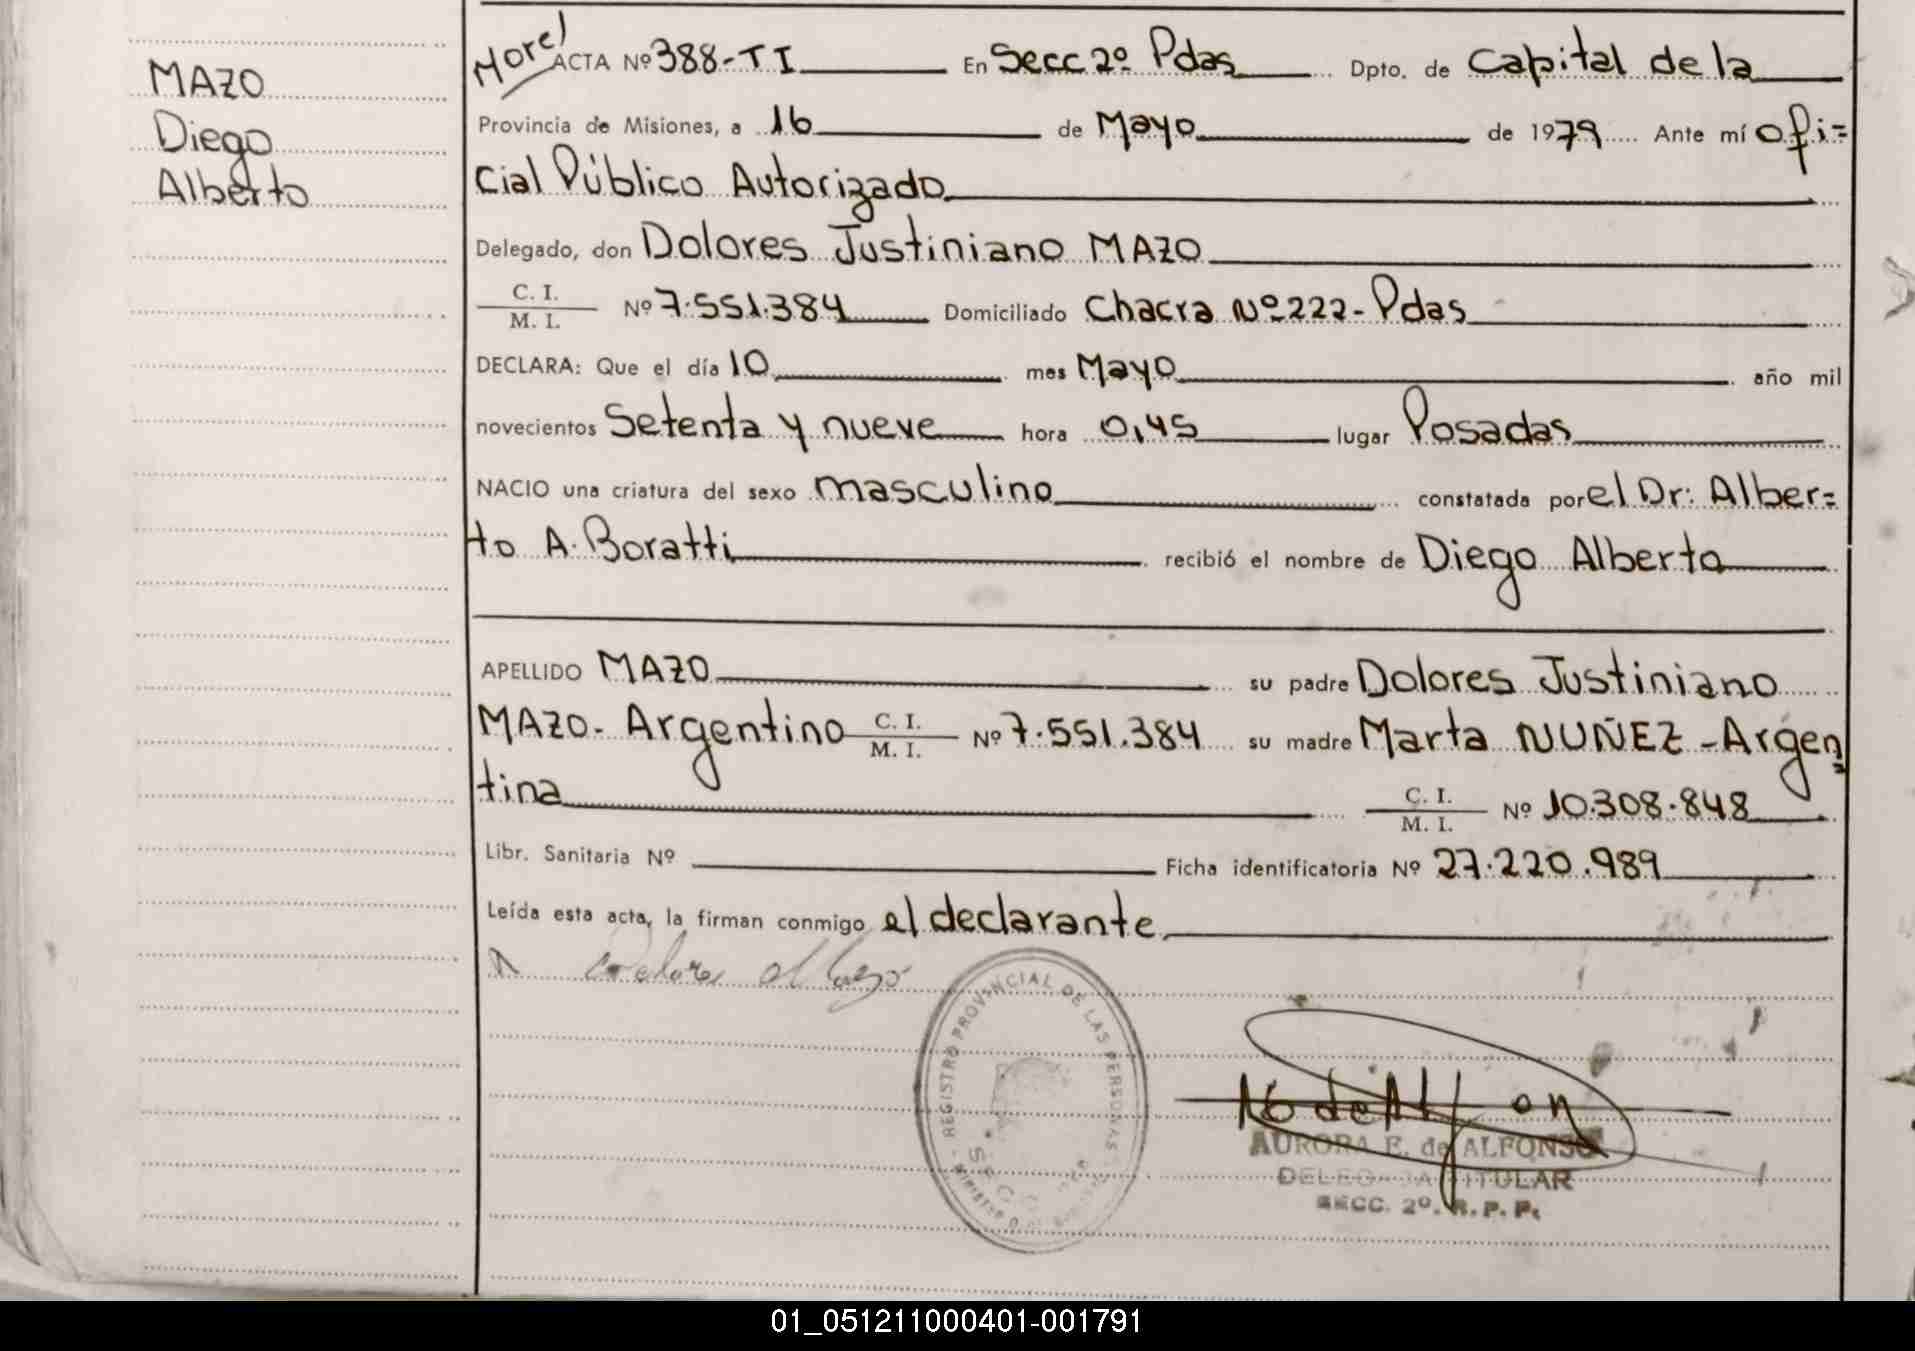 MAZO
Diego
Alberto
Morel ACTA Nº 388-TI En Secc 2º Pdas Dpto. de Capital de la
Provincia de Misiones, a 16 de Mayo de 1979 Ante mí Ofi=
cial Público Autorizado
Delegado, don Dolores Justiniano MAZO
C. I.
M. I. Nº 7.551.384 Domiciliado Chacra Nº 222- Pdas
DECLARA: Que el día 10 mes Mayo año mil
novecientos Setenta y nueve hora 0,45 lugar Posadas
NACIO una criatura del sexo masculino constatada por el Dr: Alber=
to A. Boratti recibió el nombre de Diego Alberto
APELLIDO MAZO su padre Dolores Justiniano
MAZO- Argentino C. I. M. I. Nº 7.551.384 su madre Marta NUÑEZ -Argen=
tina C. I. M. I. Nº 10.308.848
Libr. Sanitaria Nº Ficha identificatoria Nº 27.220.989
Leída esta acta, la firman conmigo el declarante
REGISTRO PROVINCIAL DE LAS PERSONAS
AURORA E. de ALFONSO
DELEGADA TITULAR
SECC. 2º. R. P. P.
01_051211000401-001791